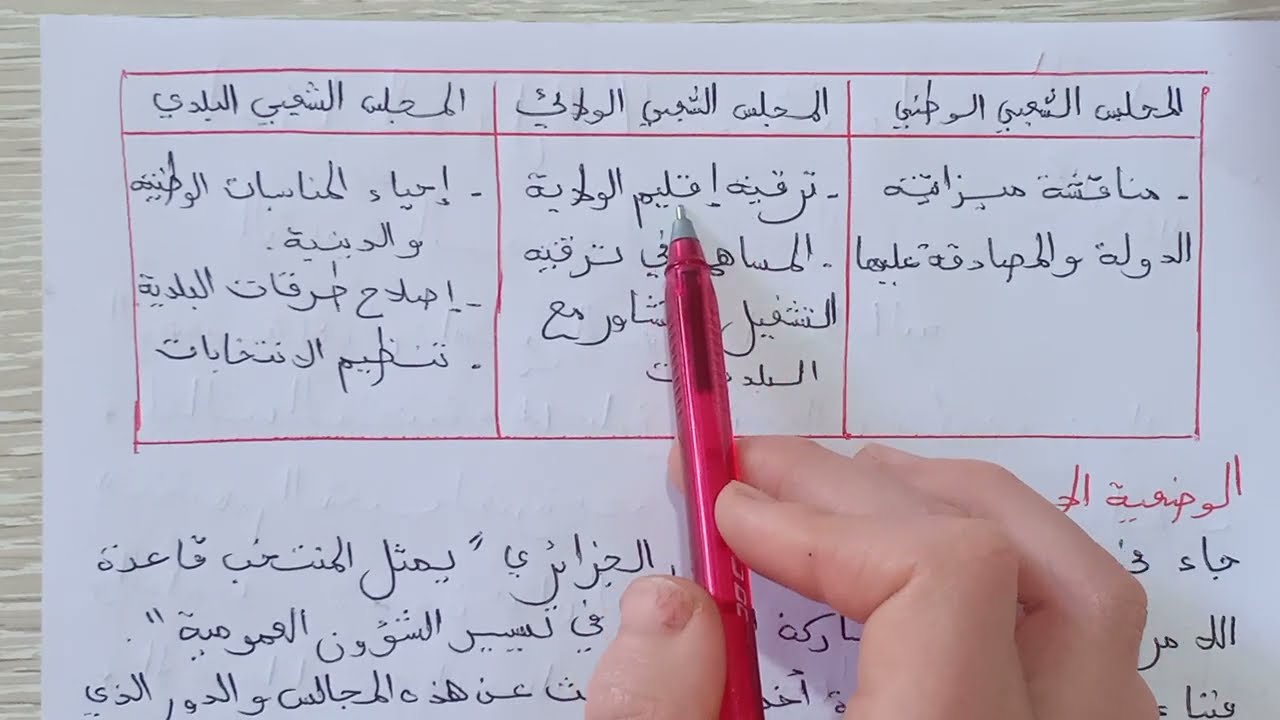 المجلس الشعبي الوطني
المجلس الشعبي الولائي
المجلس الشعبي البلدي
- مناقشة ميزانية
الدولة والمصادقة عليها
- ترقية إقليم الولاية
- المساهمة في ترقية
التشغيل مع
- إحياء المناسبات الوطنية
والدينية.
- إصلاح طرقات البلدية
- تنظيم الانتخابات
الوضعية
جاء الجزائري "يمثل المنتخب قاعدة
في تسيير الشؤون العمومية".
عن هذه المجالس والدور الذي